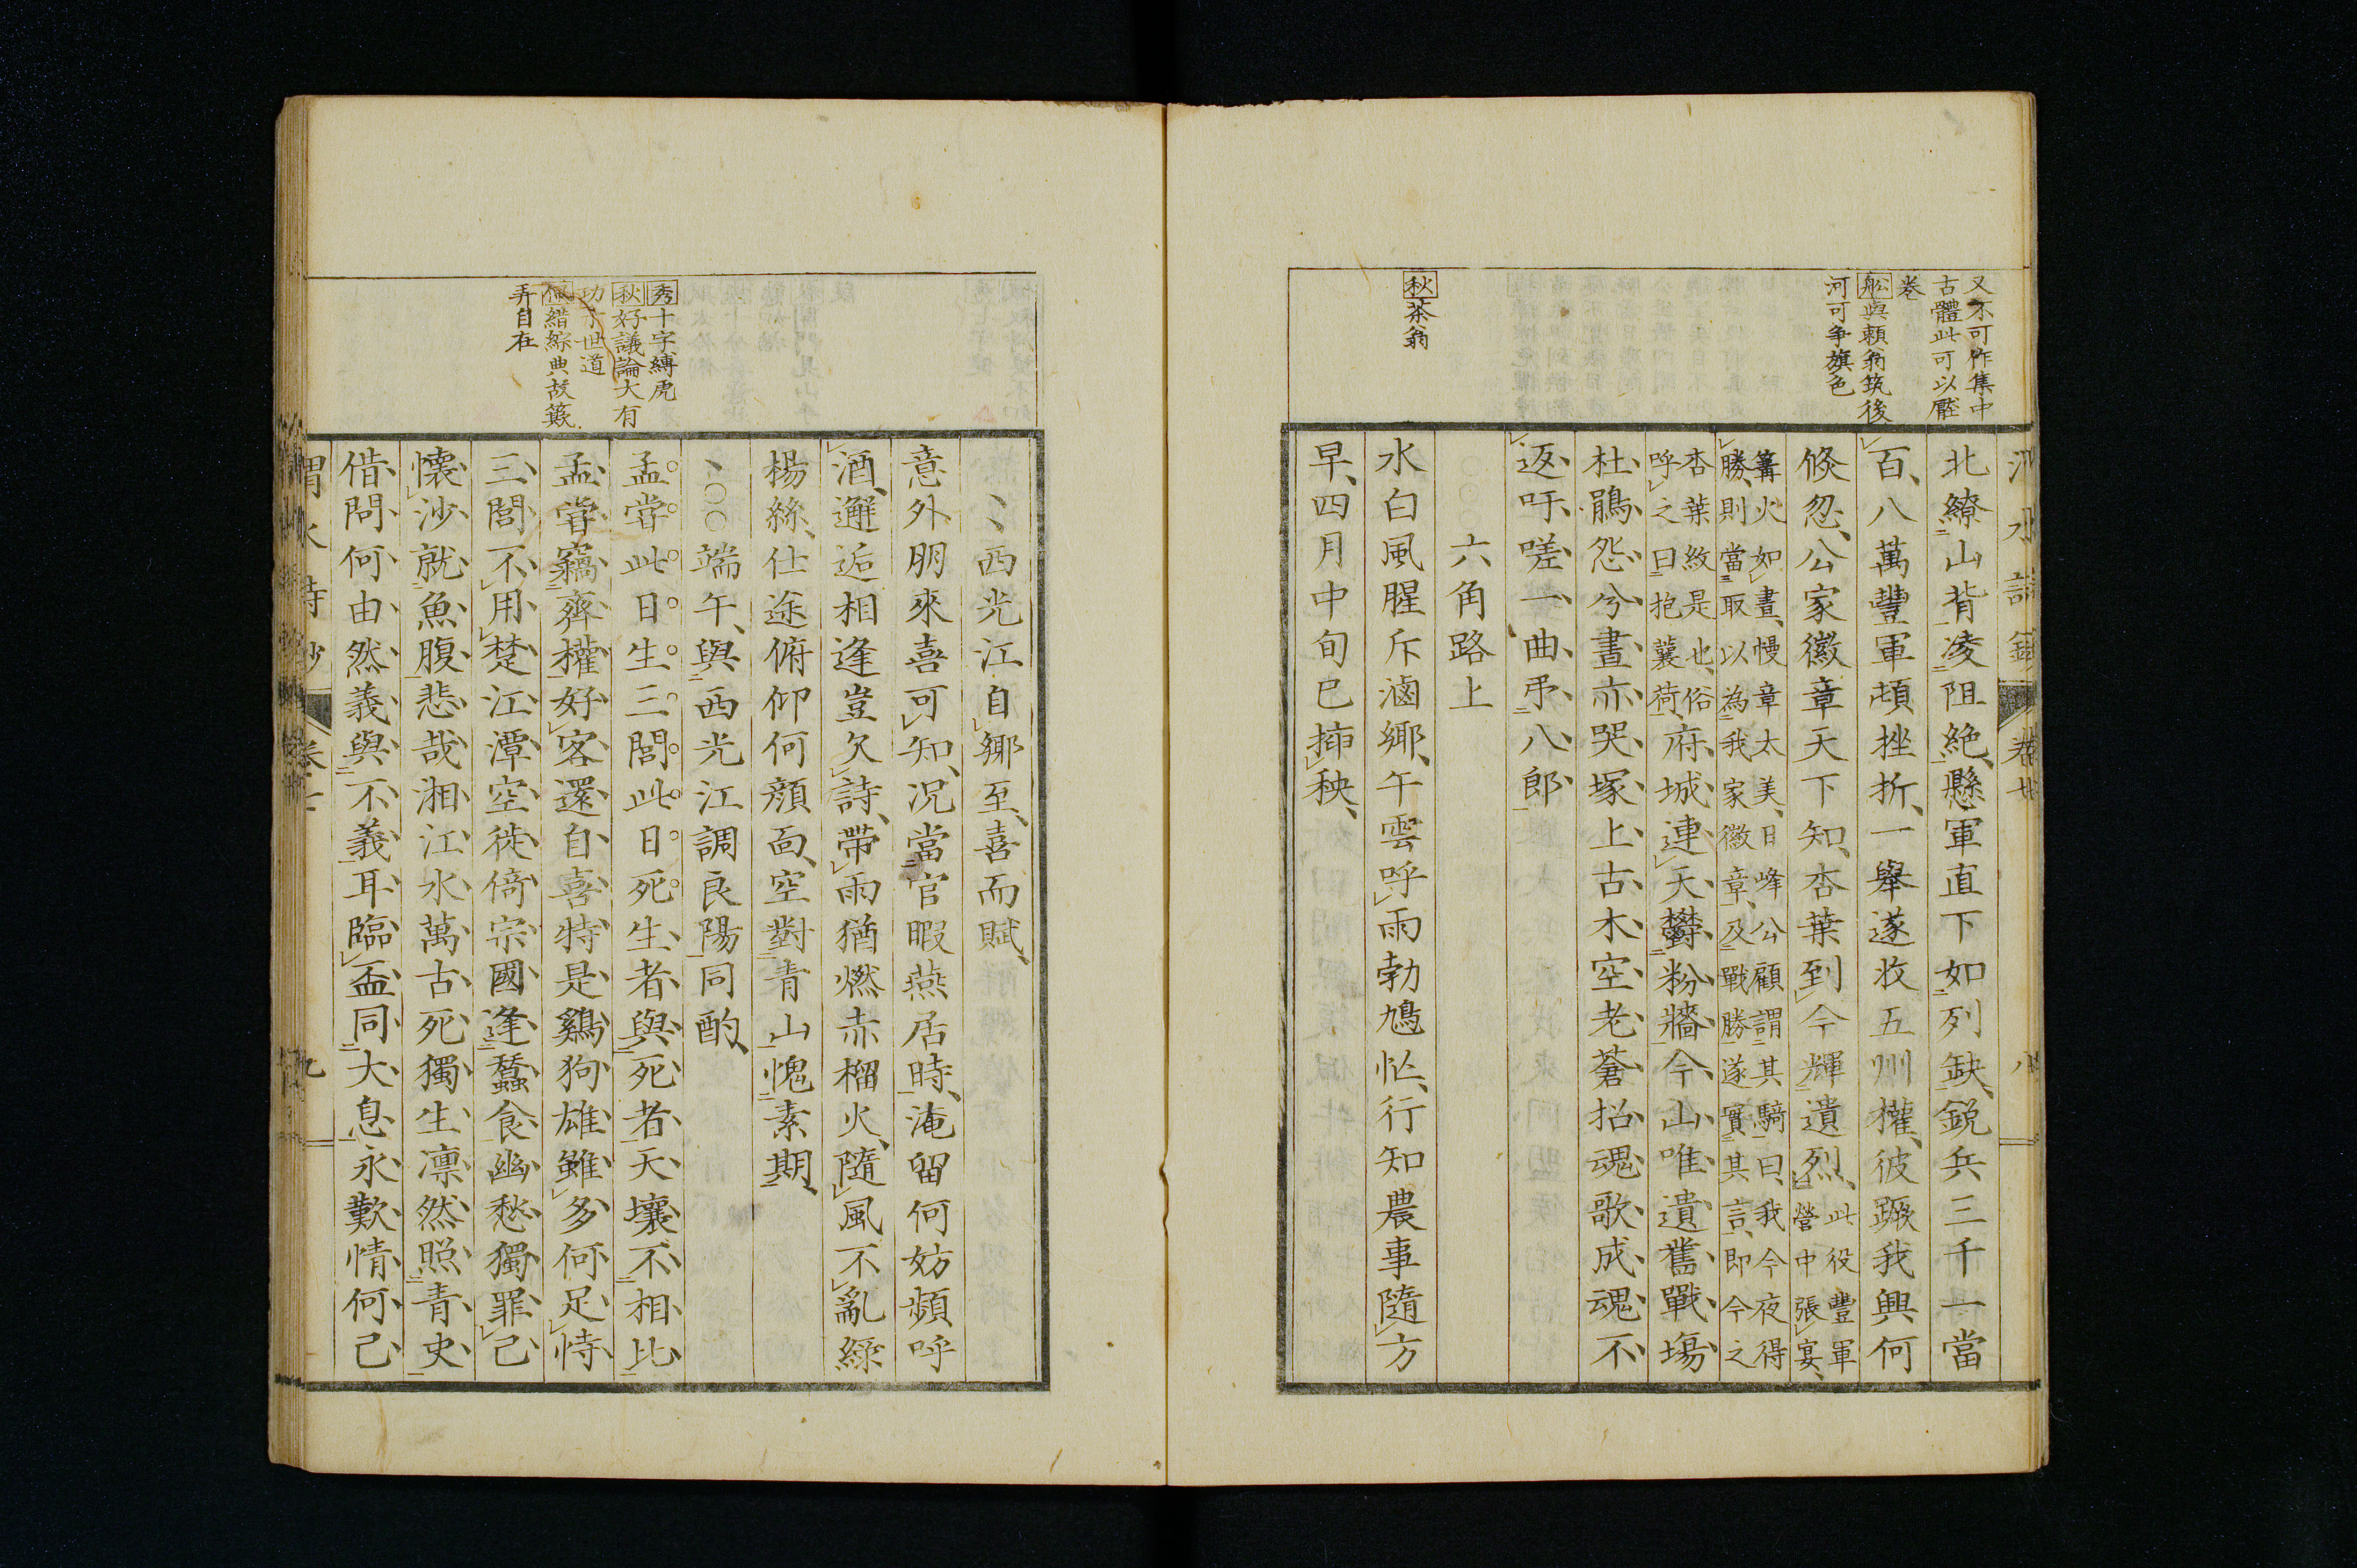 又不可作集中
古體此可以壓
卷
舩與賴翁筑後
河可争旗色
秋茶翁
北繚山背凌阻絶懸軍直下如列缺鋭兵三千一當
百八萬豐軍頓挫折一擧遂收五州權彼蹶我興何
倐忽公家徽章天下知杏葉到今輝遺烈此役豐軍
營中張宴
篝火如晝慢章太美日峰公顧謂其騎曰我今夜得
勝則當取以為我家徽章及戰勝遂實其言即今之
杏葉紋是也俗
呼之曰抱蘘荷府城連天鬱粉牆今山唯遺舊戰塲
杜鵑怨兮晝亦哭塚上古木空老蒼招魂歌成魂不
返吁嗟一曲弔八郎
六角路上
水白風腥斥滷鄉午雲呼雨勃鳩忙行知農事隨方
早四月中旬已挿秧
秀十字縛虎
秋好議論大有
功于世道
佩錯綜典故簸
弄自在
西光江自鄉至喜而賦
意外朋來喜可知况當官暇燕居時淹留何妨頻呼
酒邂逅相逢豈欠詩帶雨猶燃赤榴火隨風不亂綠
楊絲仕途俯仰何顏面空對青山愧素期
端午與西光江調良陽同酌
孟嘗此日生三閭此日死生者與死者天壤不相比
孟嘗竊齊權好客還自喜特是鷄狗雄雖多何足恃
三閭不用楚江潭空徙倚宗國逢蠶食幽愁獨罪己
懷沙就魚腹悲哉湘江水萬古死獨生凛然照青史
借問何由然義與不義耳臨盃同大息永歎情何已
九